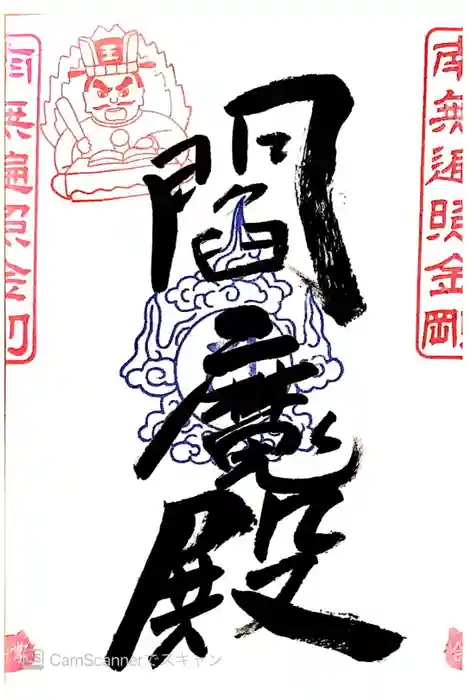 南無遍照金剛
閻魔殿
南無遍照金剛
王
CamScannerでスキャン